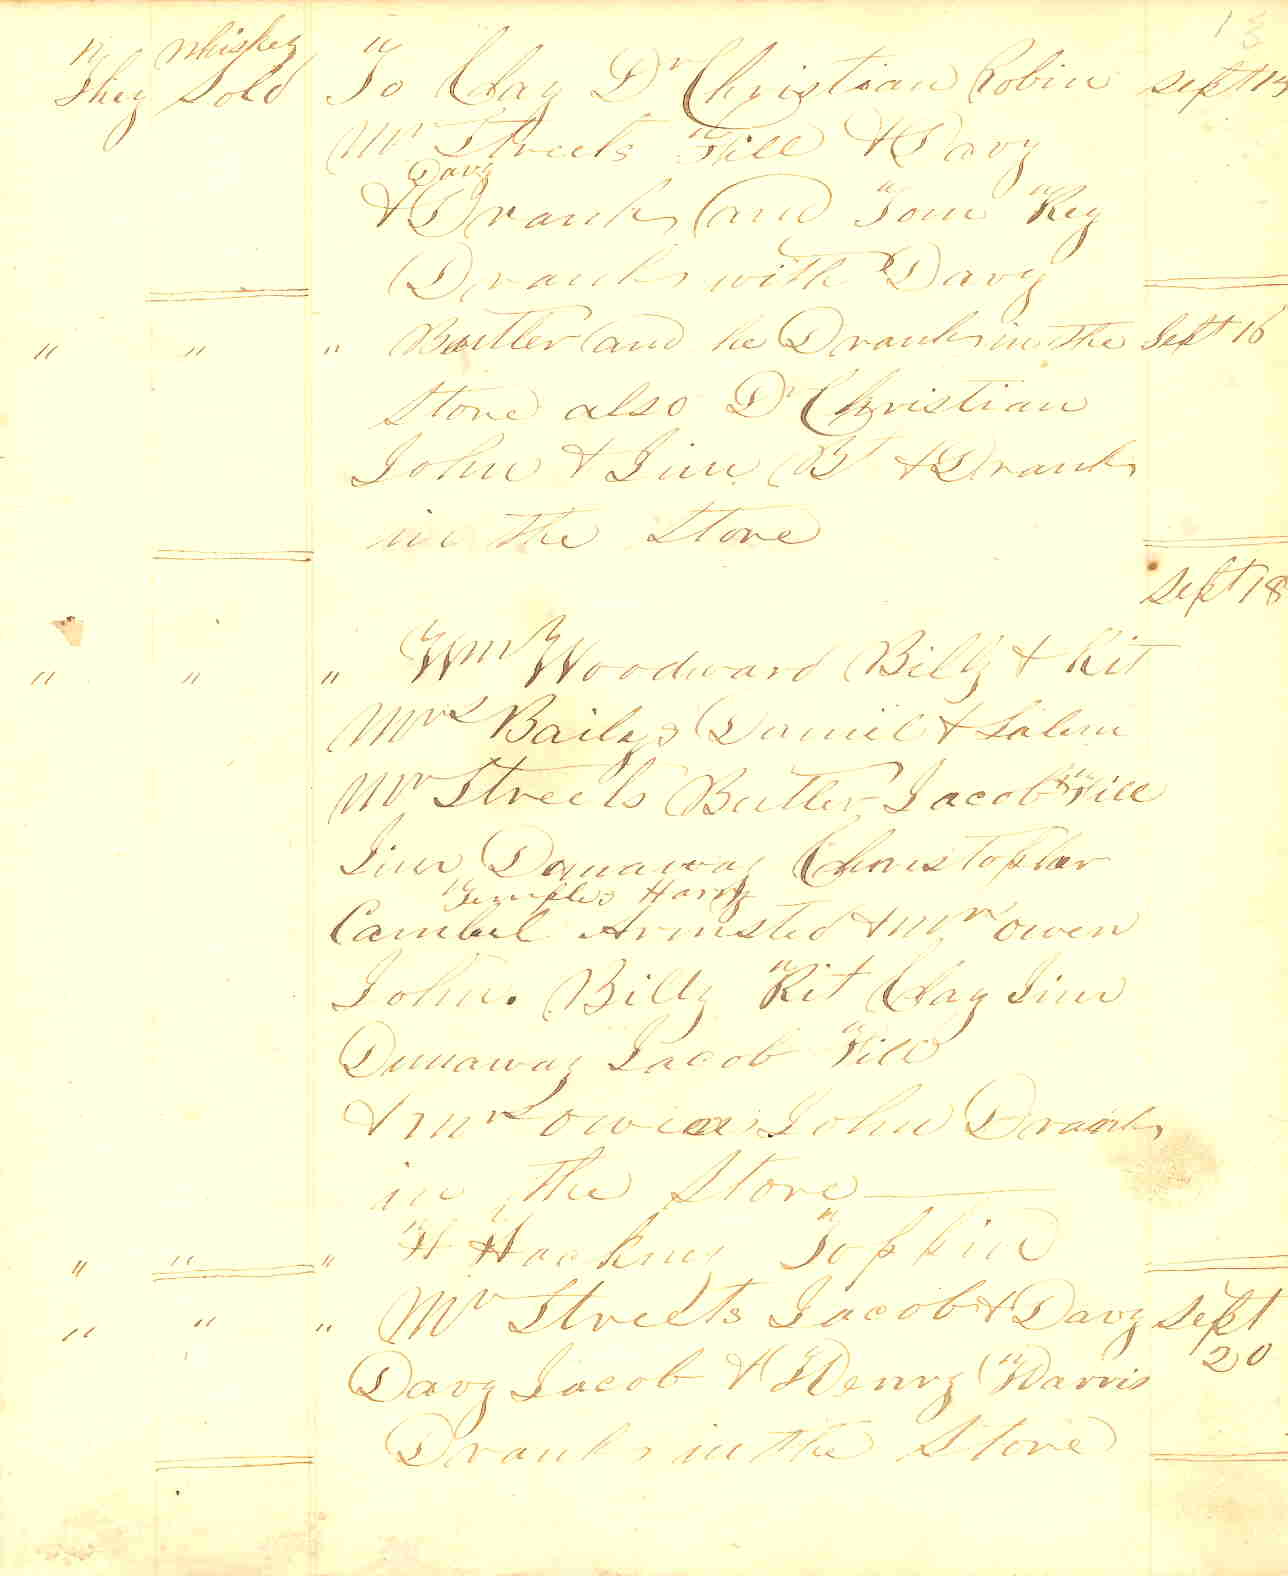 13
They Whiskey Sold To Clay Dr Christian Robin Sept 14
Mr Streets Will & Davy
Davy
& Drank and Tom Key
Drank with Davy
" " " Butler and he Drank in the Sept 16
Store also Dr Christian
John & Jim B & Drank
in the Store
Sept 18
" " " Wm Woodward Billy & Kit
Mrs Bailys Daniel & Salem
Mr Streets Butler Jacob & Will
Jim Dunaway Christopher
Temples Harry
Cambel Armsted & Mrs Owen
John. Billy Kit Clay Jim
Dunaway Jacob Will
& Mrs Owen John Drank
in the Store
" " " H Hackney
" " " Mr Streets Jacob & Davy Sept 20
Davy Jacob & Henry Harris
Drank in the Store